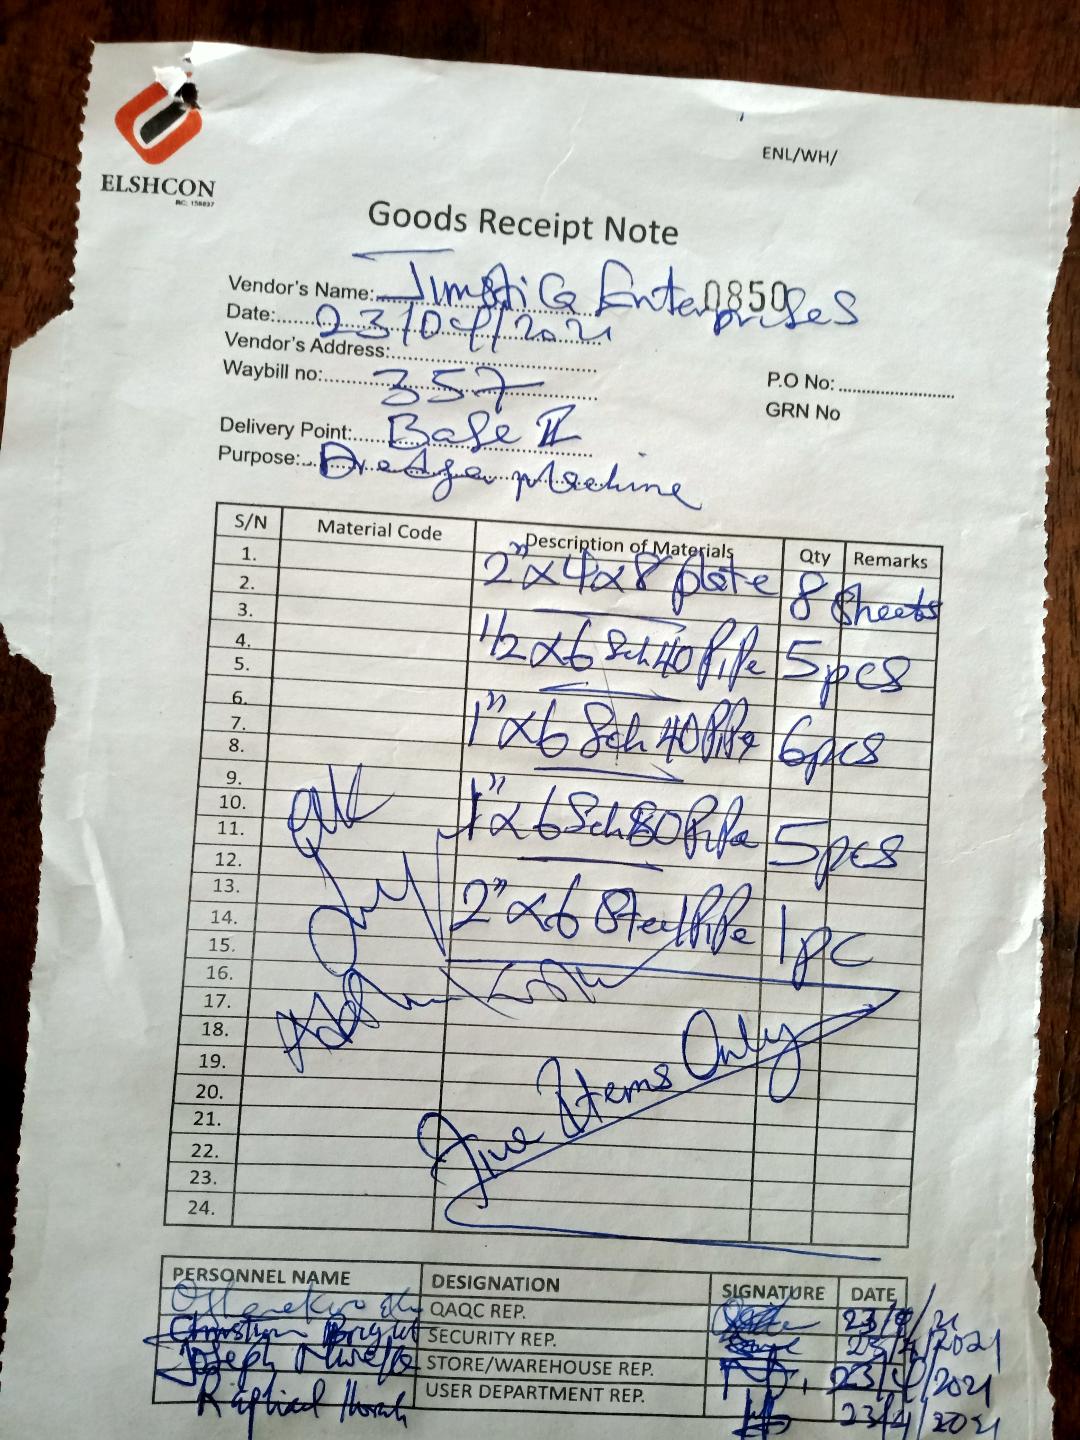 ENL/WH/
ELSHCON
RC: 156837
Goods Receipt Note
Vendor's Name: Enterprises
0850
Date: 23/04/2021
Vendor's Address:
Waybill no: 357
P.O No:
GRN No
Delivery Point: Base II
Purpose: Dredger Machine
S/N Material Code Description of Materials Qty Remarks
1.
2. 2" x 4 x 8 plate 8 Sheets
3.
4.
5. 1/2 x 6 Sch 40 PiPe 5pcs
6.
7.
8. 1" x 6 Sch 40 PiPe 6pcs
9.
10.
11. 1" x 6 Sch 80 PiPe 5pcs
12.
13.
14. 2" x 6 Steel PiPe 1pc
15.
16.
17.
18.
19.
20.
21.
22.
23.
24.
Five Items Only
PERSONNEL NAME DESIGNATION SIGNATURE DATE
QAQC REP. 23/4/21
Christian Bright SECURITY REP. 23/4/2021
Joseph STORE/WAREHOUSE REP. 23/4/2021
Raphael USER DEPARTMENT REP. 23/4/2021